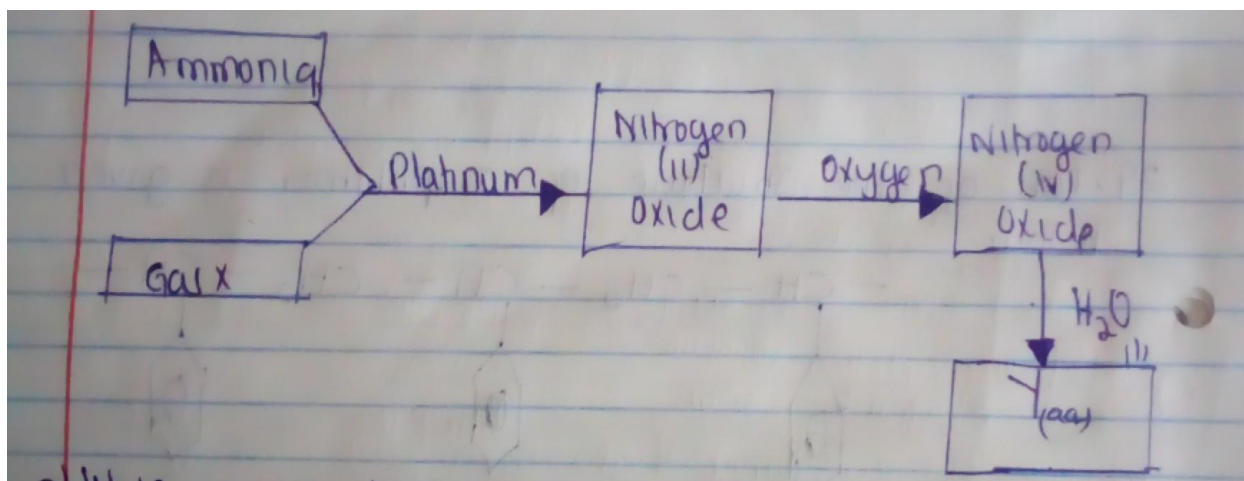 Ammonia
Platinum
Nitrogen
(ii)
Oxide
Oxygen
Nitrogen
(iv)
Oxide
Gas X
H₂O
(l)
Y(aq)